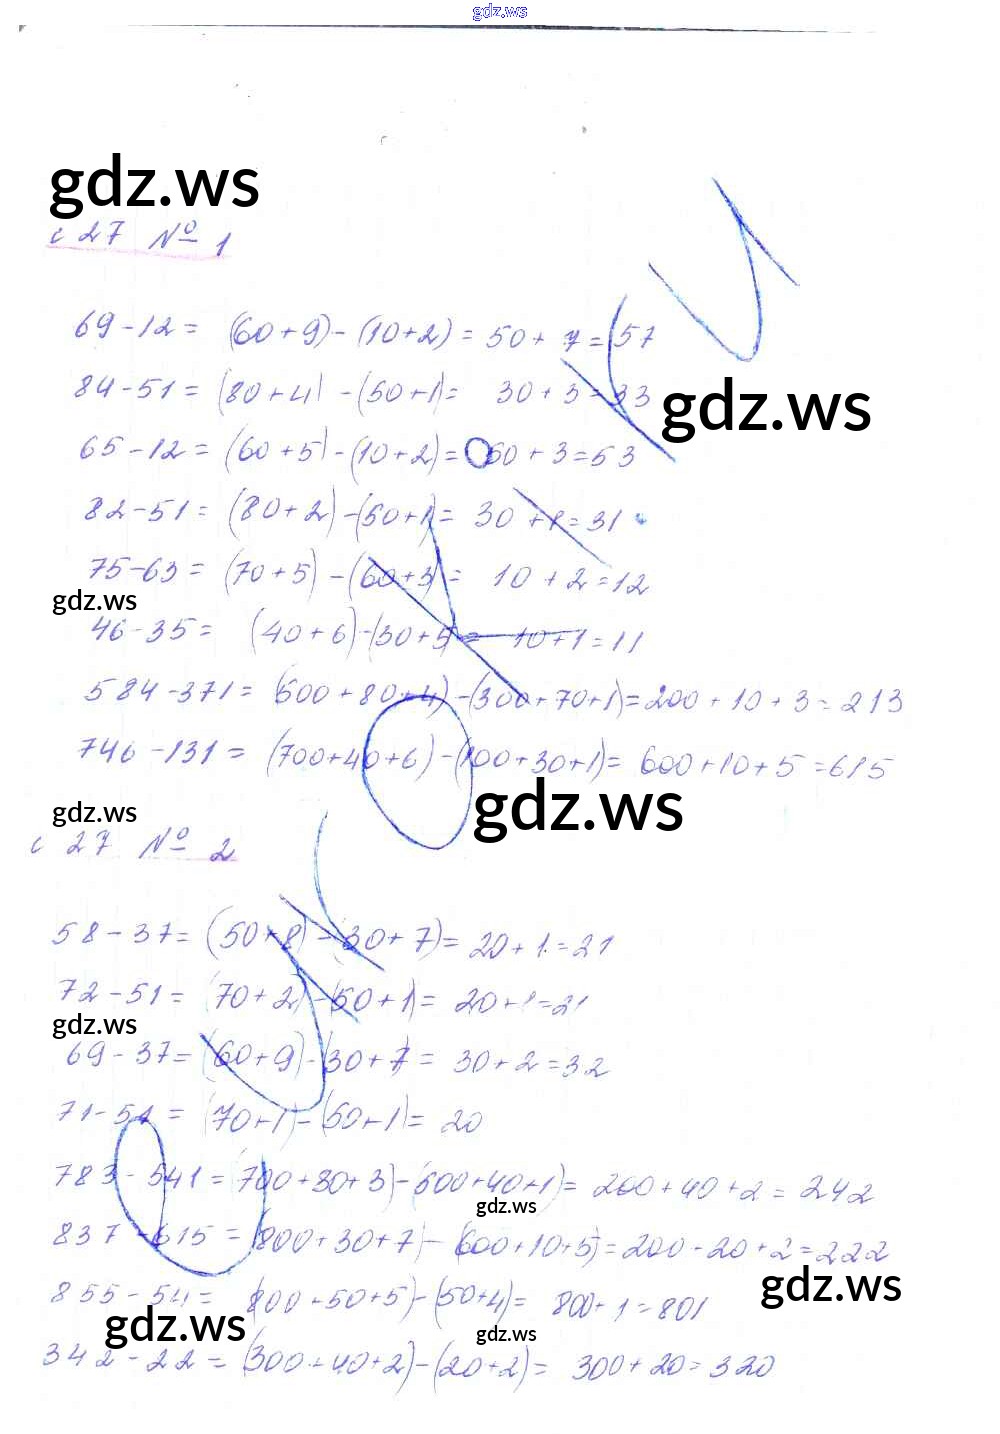 gdz.ws
gdz.ws
с 27 № 1
69-12 = (60+9)-(10+2) = 50+7=57
84-51 = (80+4)-(50+1)= 30+3=33
gdz.ws
65-12 = (60+5)-(10+2)= 50+3=53
82-51 = (80+2)-(50+1)= 30+1=31
75-63 = (70+5)-(60+3)= 10+2=12
gdz.ws
46-35 = (40+6)-(30+5)= 10+1=11
584-371= (500+80+4)-(300+70+1)=200+10+3=213
746-131= (700+40+6)-(100+30+1)= 600+10+5=615
gdz.ws
gdz.ws
с 27 № 2
58-37= (50+8)-(30+7)= 20+1=21
72-51= (70+2)-(50+1)= 20+1=21
gdz.ws
69-37= (60+9)-(30+7)= 30+2=32
71-51= (70+1)-(50+1)= 20
783-541=(700+80+3)-(500+40+1)= 200+40+2=242
gdz.ws
837-615=(800+30+7)-(600+10+5)=200+20+2=222
gdz.ws
855-54= (800+50+5)-(50+4)= 800+1=801
gdz.ws
gdz.ws
342-22=(300+40+2)-(20+2)= 300+20=320